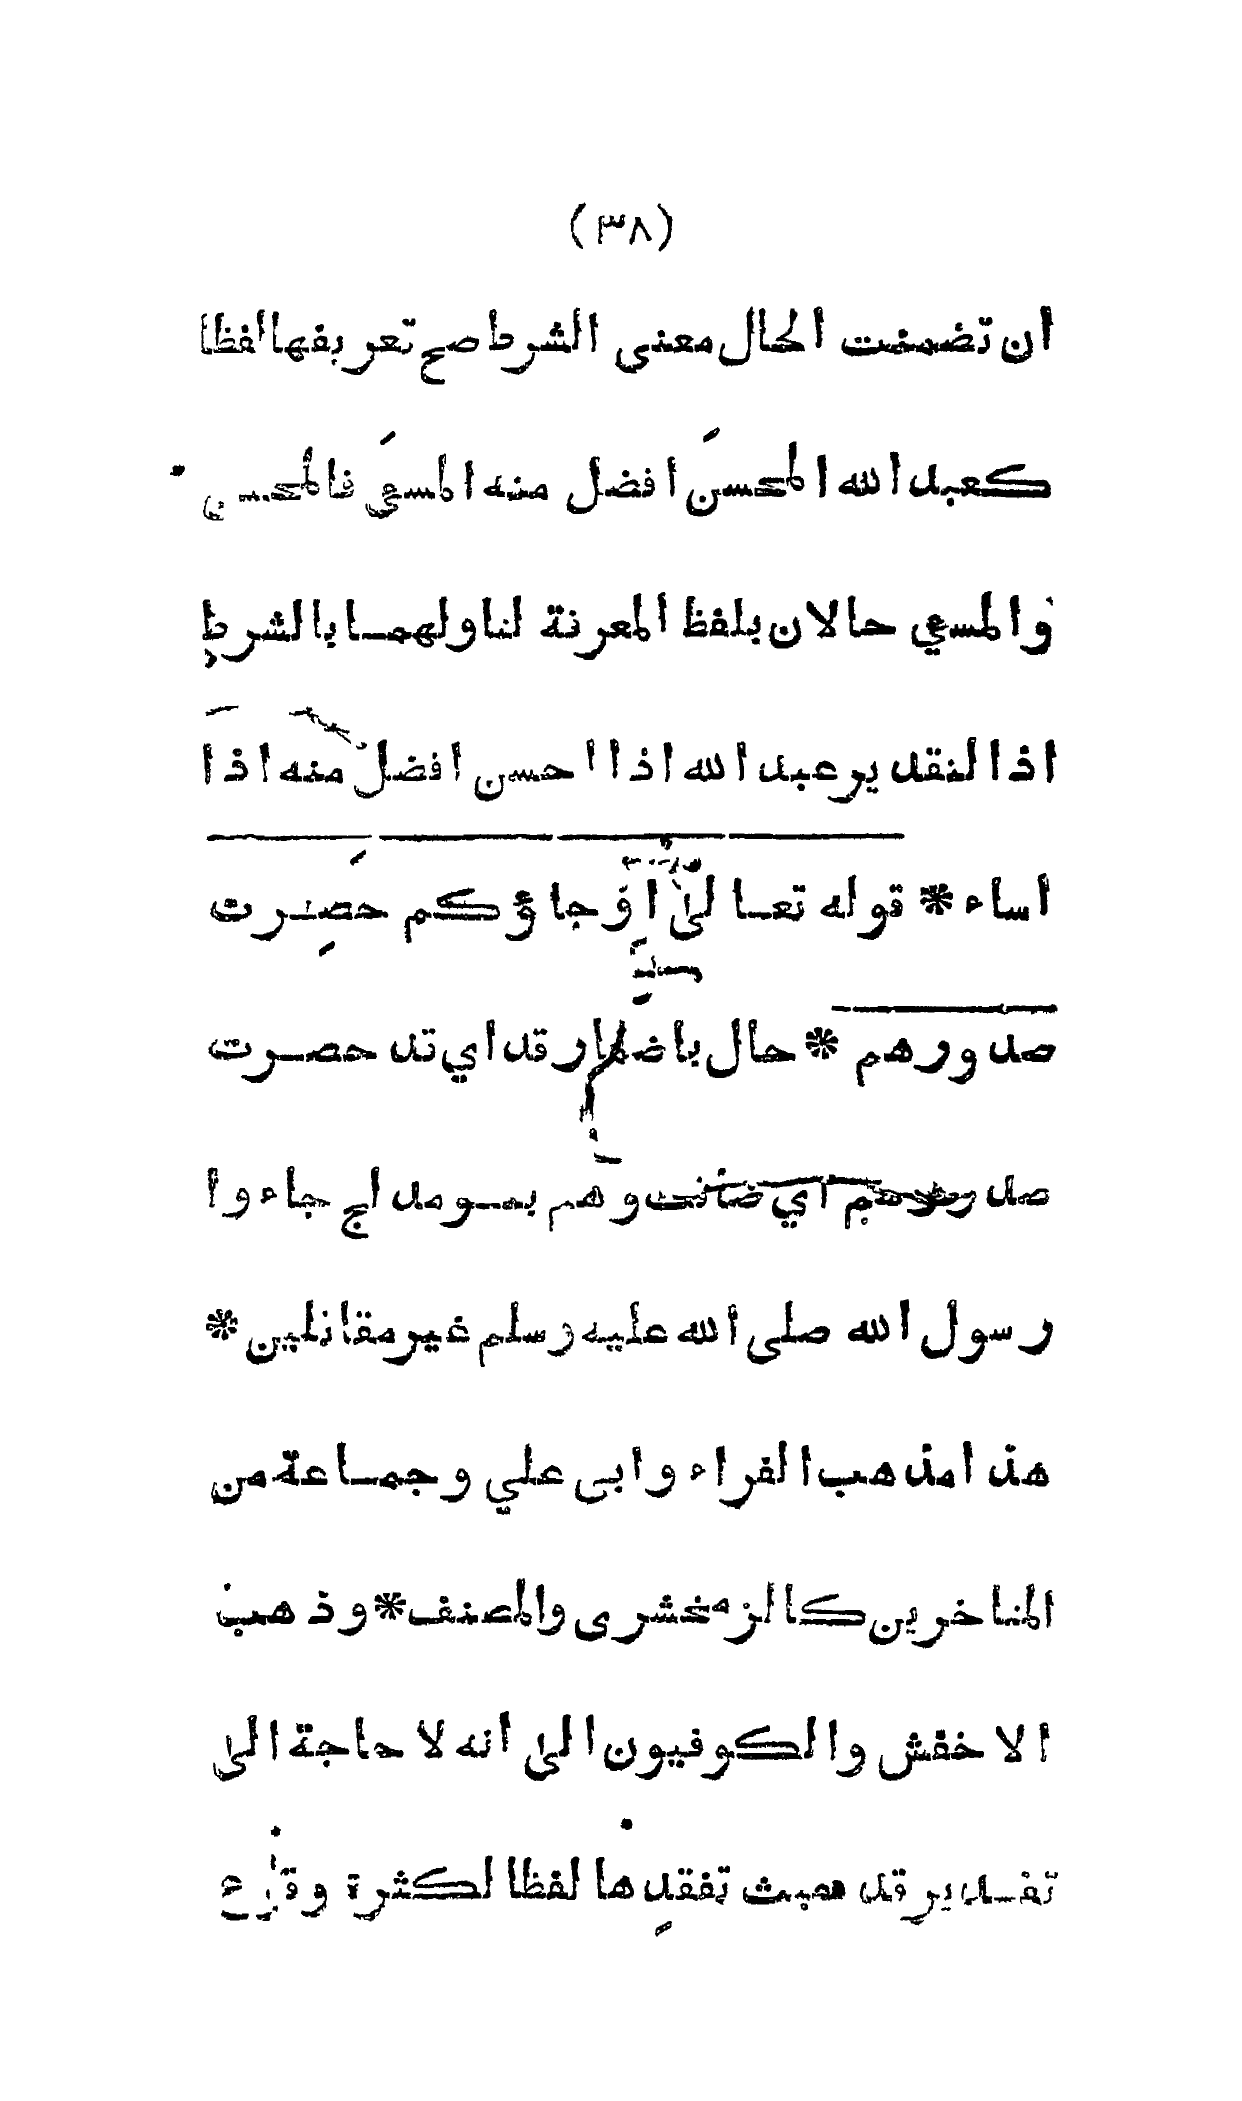 (٣٨)
ان تضمنت الحال معنى الشرط صح تعريفها لفظا
كعبد الله المحسنَ افضل منه المسئَ فالمحسن
والمسئ حالان بلفظ المعرفة لتاولهما بالشرط
اذا التقدير عبد الله اذا احسن افضل منه اذا
اساء * قوله تعالىٰ اَوْ جاؤكم حَصِرت
صدورهم * حال باضمار قد اي قد حصرت
صدورهم اي ضاقت وهم بنومدلج جاءوا
رسول الله صلى الله عليه وسلم غير مقاتلين *
هذا مذهب الفراء وابى علي وجماعة من
المتاخرين كالزمخشرى والمصنف * وذهب
الاخفش والكوفيون الىٰ انه لا حاجة الىٰ
تقدير قد حيث تفقدها لفظا لكثرة وقوع